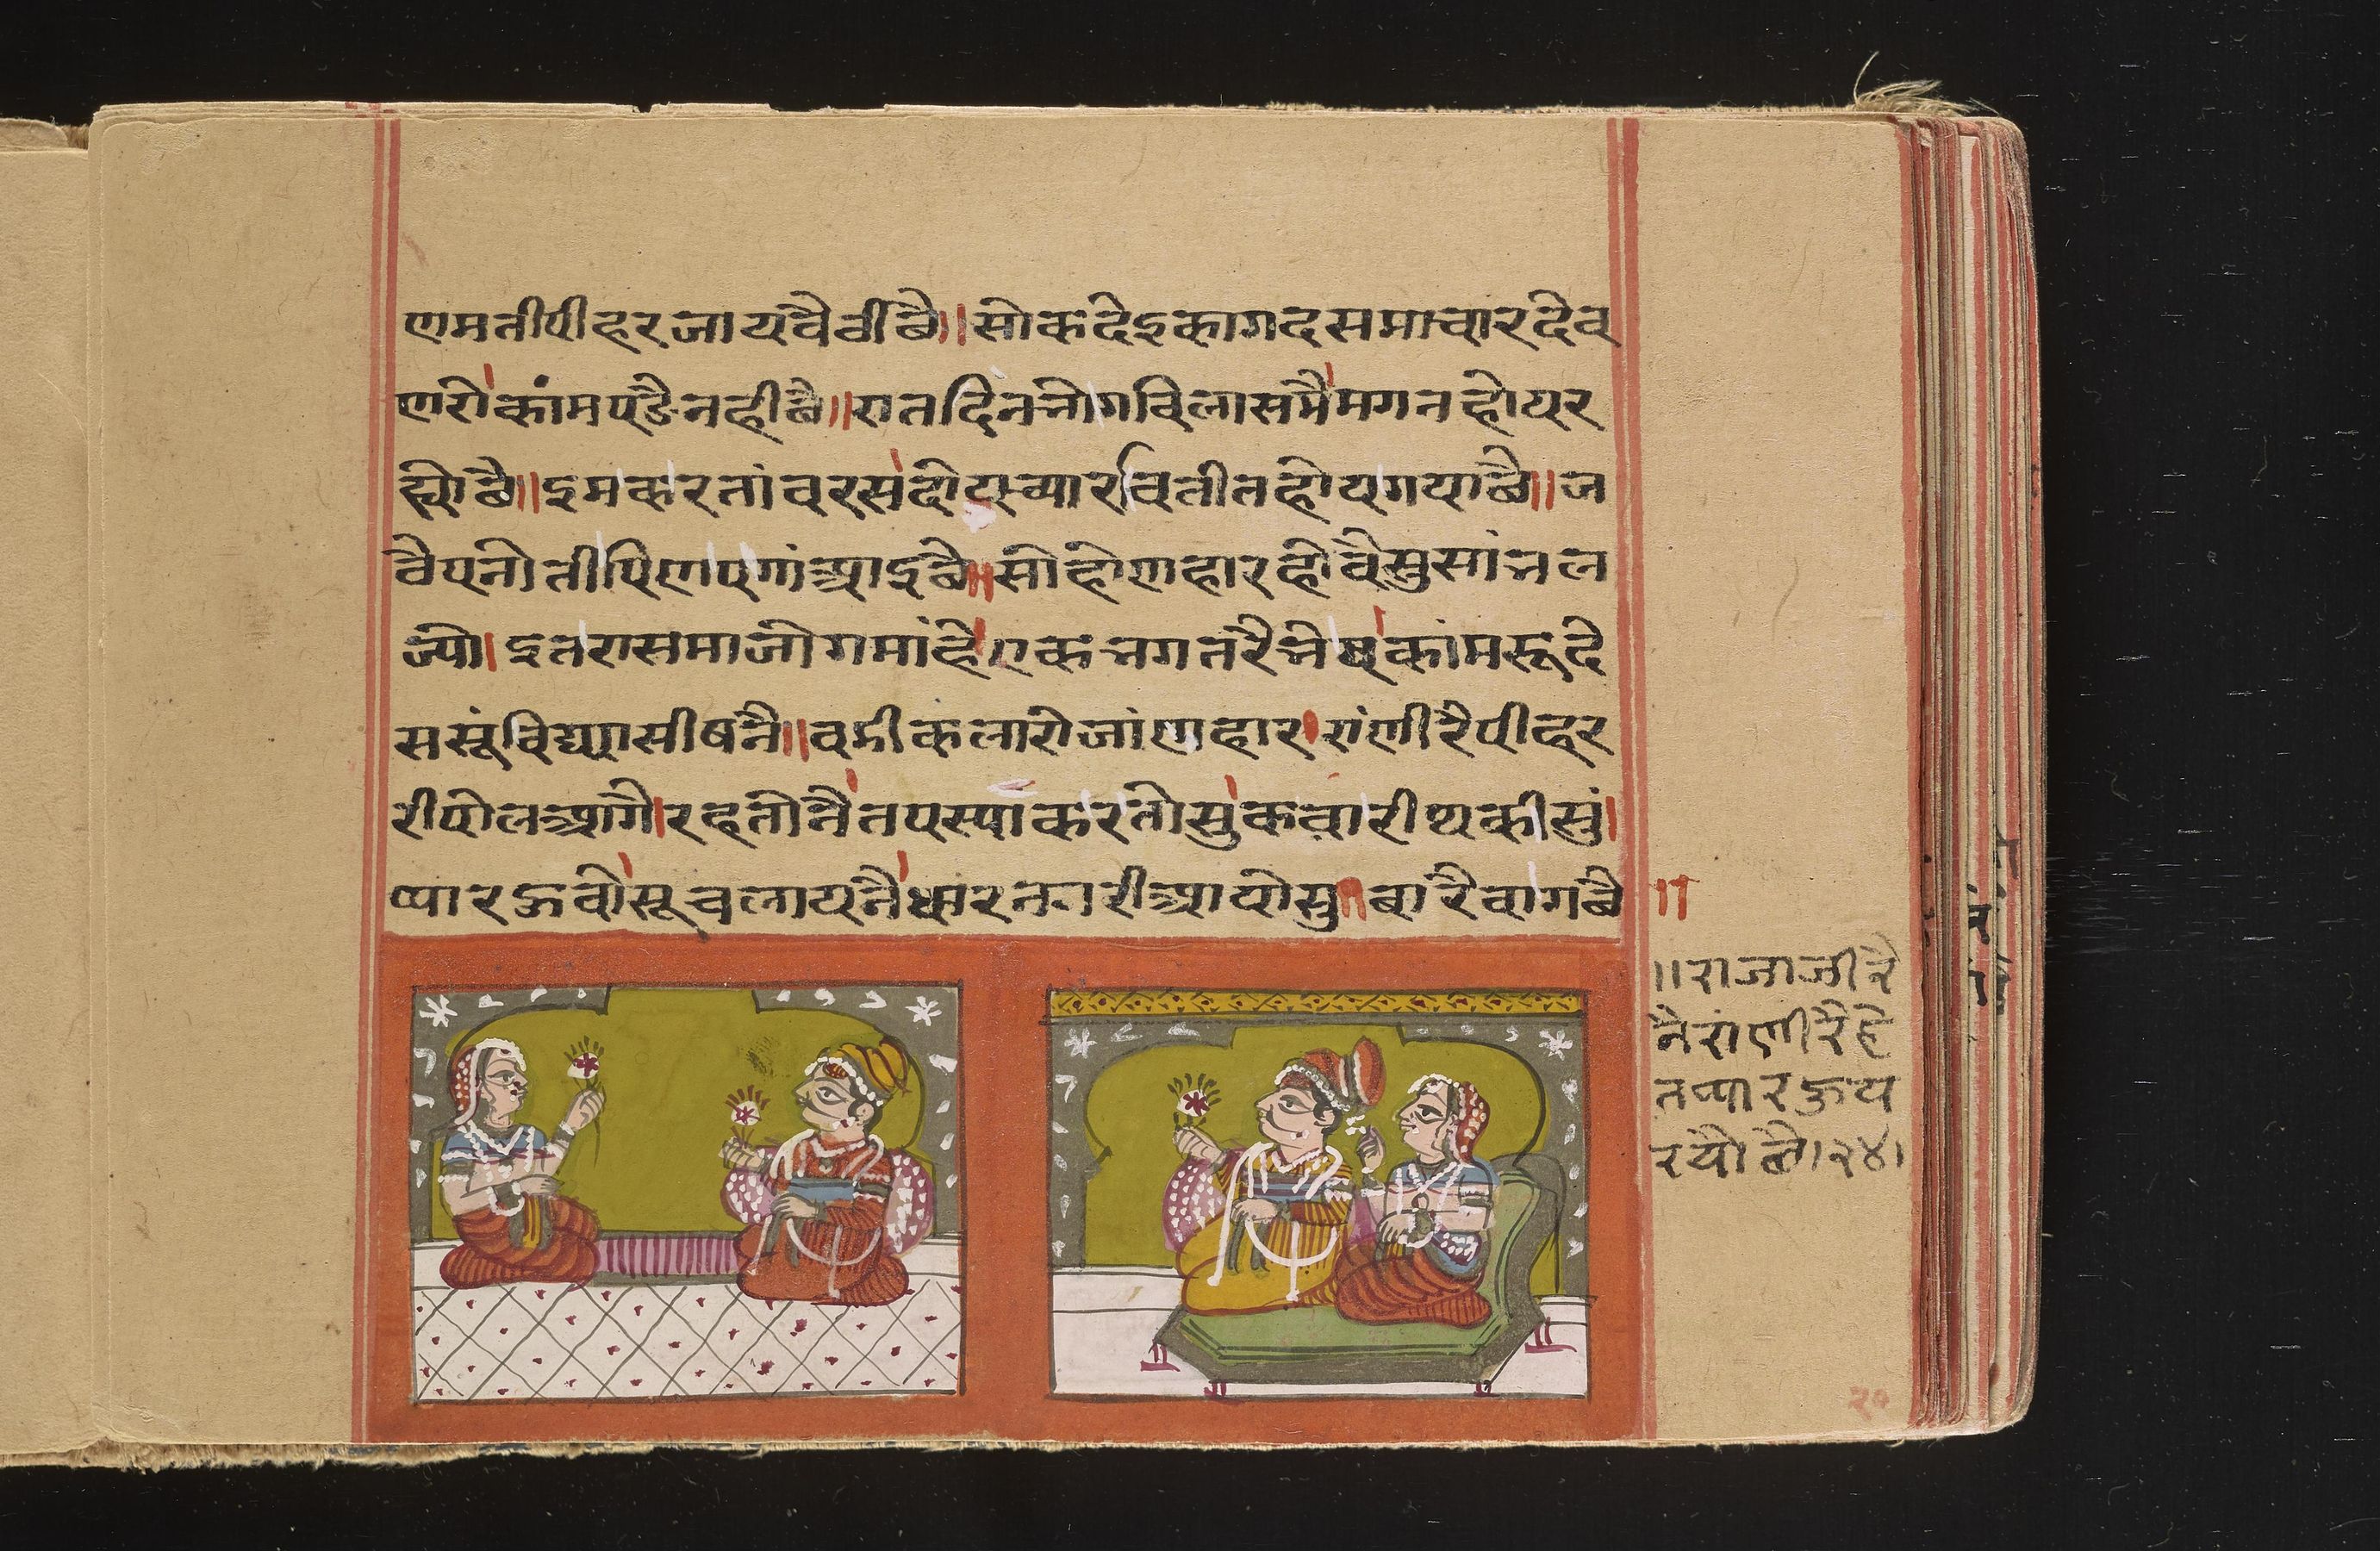 णमतीपीहरजायवैचीछै॥सोकदेइकागदसमाचारदेव
णरोकांमपडैनहीछै॥रातदिनभोगविलासमैमगनहोयर
ह्योछै॥इमकरतांवरसदोयच्यारवितीतहोयगयाछै॥ज
वैपनोतीपिणपगांआइछै॥सोहोणहारहोवैसुसांभल
ज्यो।इतरासमाजोगमांहे।एकभगतरैभेषकांमरूदे
ससूंविद्यासीषनै॥वडीकलारोजांणहार।रांणीरैपीहर
रीपोलआगै।रहतोनैतपस्याकरतोसुकवारीथकीसुं।
प्यारऊवोसूचलायनैधारनगरीआयोसु॥बारैवागछै॥
॥राजाजीरै
नैरांणीरैहे
तप्यारऊय
रयौछै।२४।